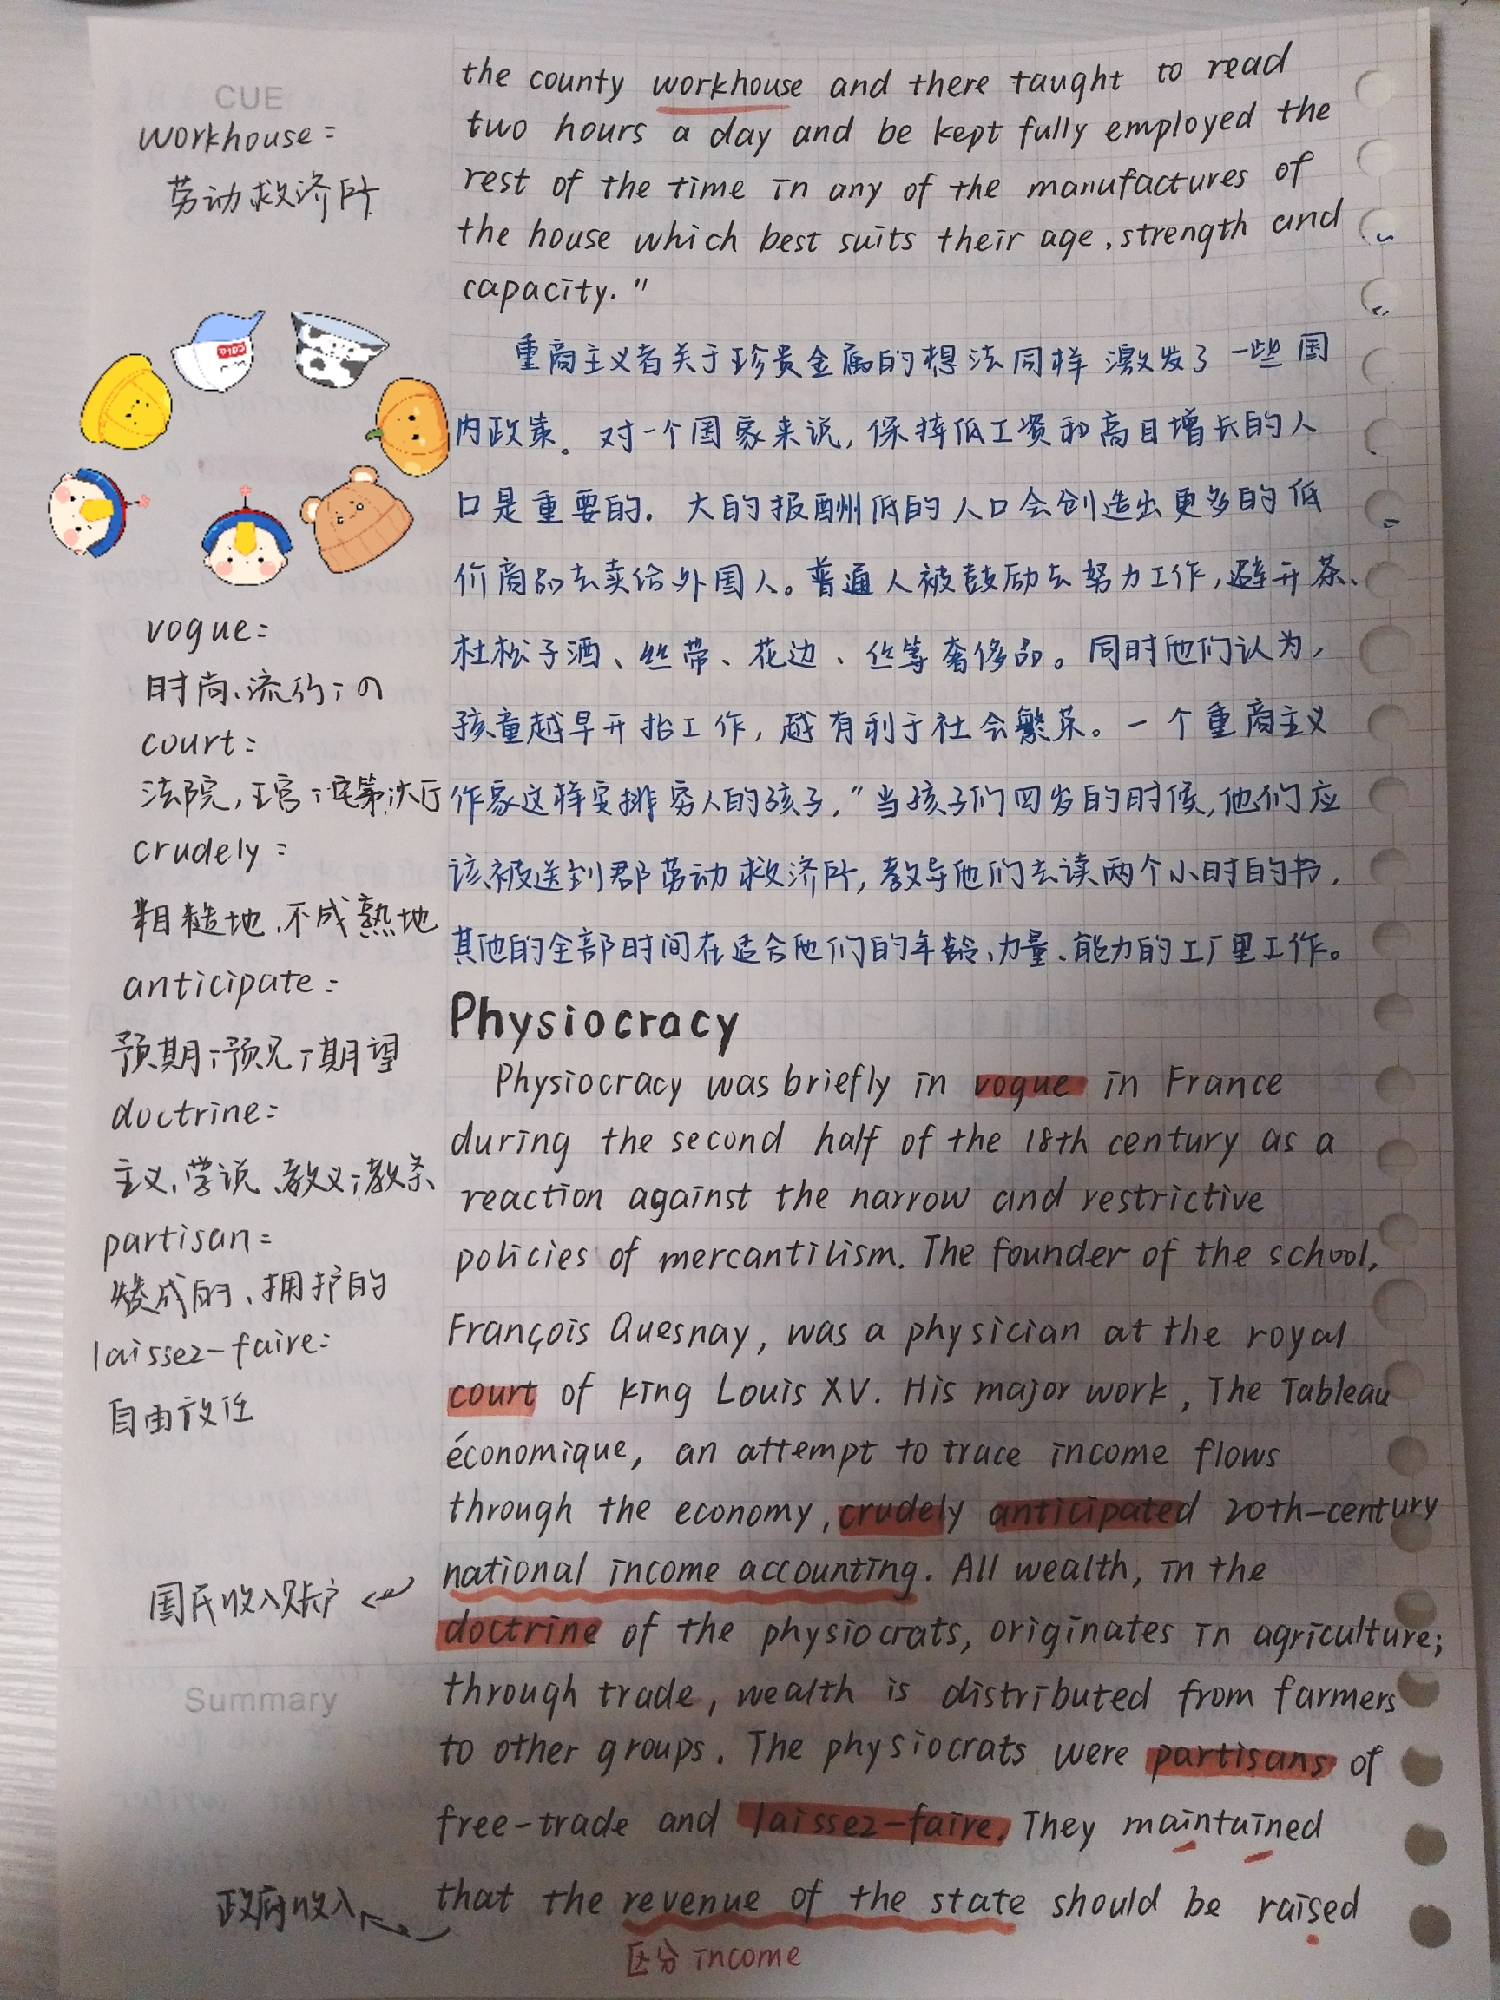 CUE
workhouse:
劳动救济所
vogue:
时尚、流行;の
court:
法院,王宫;
crudely:
粗糙地、不成熟地
anticipate:
预期;预见;期望
doctrine:
主义、学说、教义;教条
partisan:
赞成的、拥护的
laissez-faire:
自由放任
国民收入账户
Summary
政府收入
the county workhouse and there taught to read
two hours a day and be kept fully employed the
rest of the time in any of the manufactures of
the house which best suits their age, strength and
capacity."
重商主义者关于珍贵金属的想法同样激发了一些国
内政策。对一个国家来说,保持低工资和高目增长的人
口是重要的. 大的报酬低的人口会创造出更多的低
价商品去卖给外国人。普通人被鼓励去努力工作,避开茶、
杜松子酒、丝带、花边、丝等奢侈品。同时他们认为,
孩童越早开始工作,越有利于社会繁荣。一个重商主义
作家这样安排穷人的孩子,"当孩子们四岁的时候,他们应
该被送到郡劳动救济所,教导他们去读两个小时的书,
其他的全部时间在适合他们的年龄、力量、能力的工厂里工作。
Physiocracy
Physiocracy was briefly in vogue in France
during the second half of the 18th century as a
reaction against the narrow and restrictive
policies of mercantilism. The founder of the school,
François Quesnay, was a physician at the royal
court of king Louis XV. His major work, The Tableau
économique, an attempt to trace income flows
through the economy, crudely anticipated 20th-century
national income accounting. All wealth, in the
doctrine of the physiocrats, originates in agriculture;
through trade, wealth is distributed from farmers
to other groups. The physiocrats were partisans of
free-trade and laissez-faire. They maintained
that the revenue of the state should be raised
区分 income